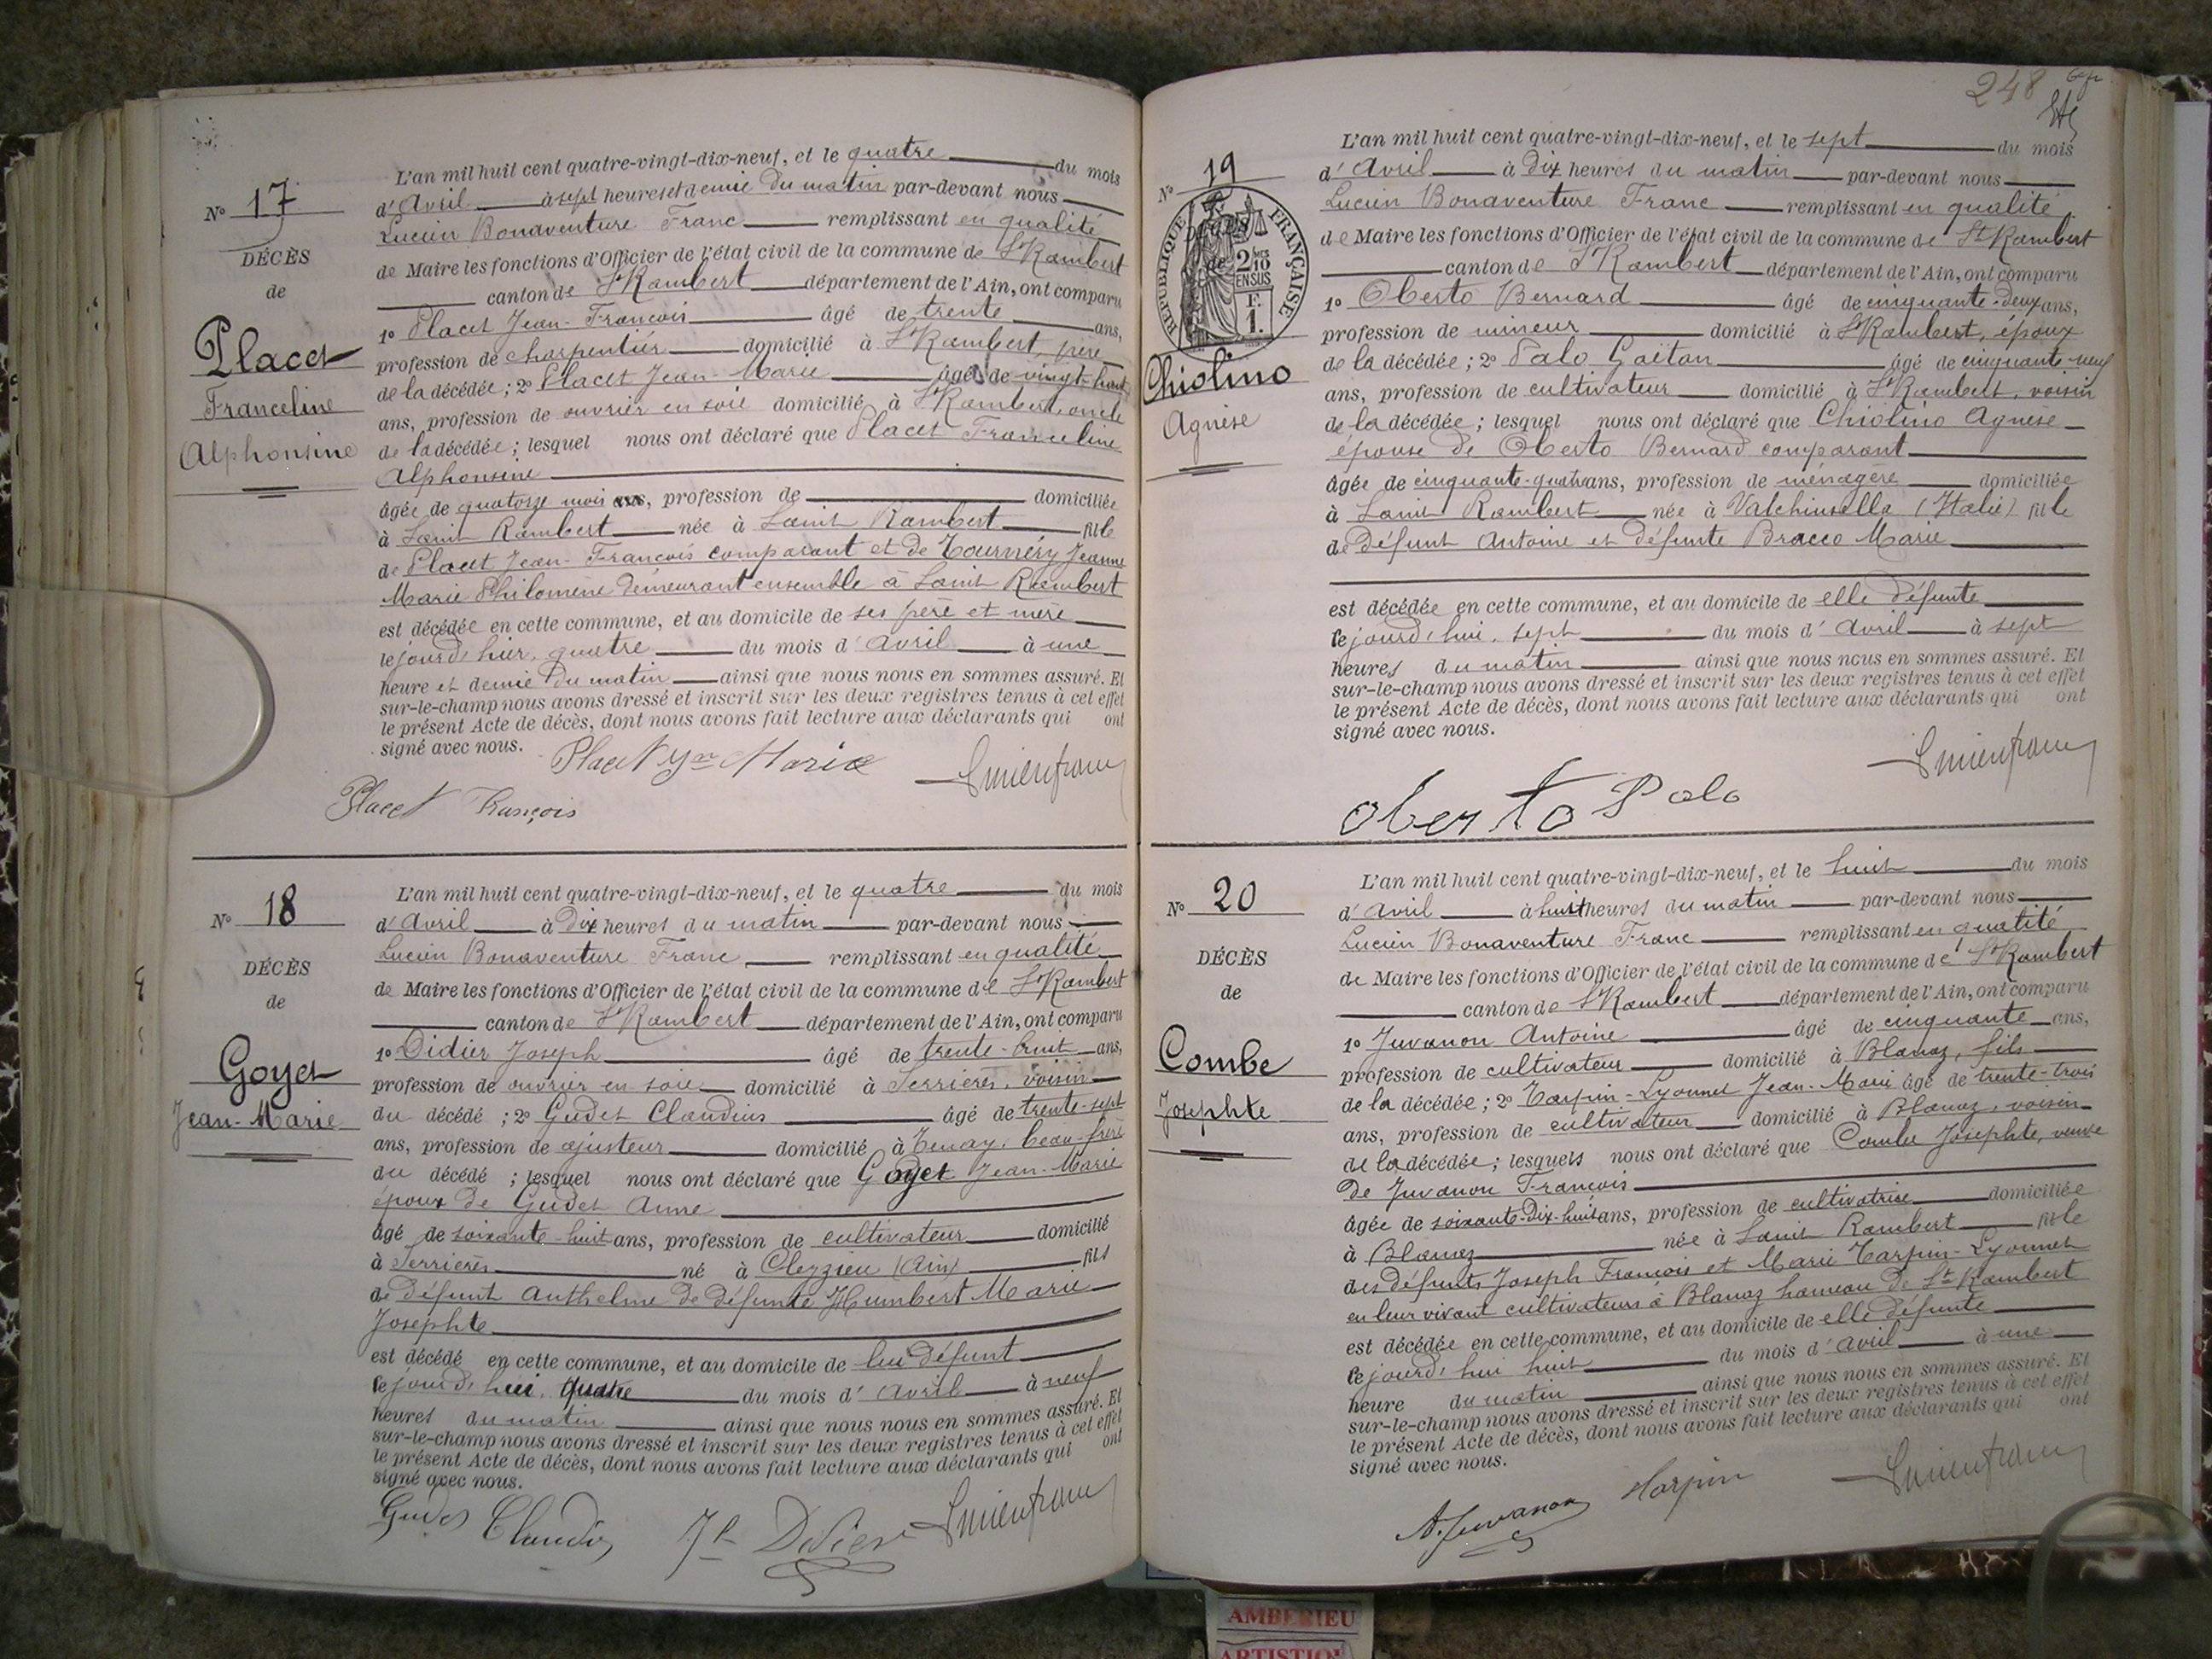 N° 17
DÉCÈS
de
Placet
Franceline
Alphonsine
L'an mil huit cent quatre-vingt-dix-neuf, et le quatre du mois
d'Avril à sept heures et demie du matin par-devant nous
Lucien Bonaventure Franc remplissant en qualité
de Maire les fonctions d'Officier de l'état civil de la commune de St Rambert
canton de St Rambert département de l'Ain, ont comparu
1° Placet Jean-François âgé de trente ans,
profession de charpentier domicilié à St Rambert, père
de la décédée ; 2° Placet Jean-Marie âgé de vingt-huit
ans, profession de ouvrier en soie domicilié à St Rambert, oncle
de la décédée ; lesquel nous ont déclaré que Placet Franceline
Alphonsine
âgée de quatorze mois ans, profession de domiciliée
à Saint Rambert née à Saint Rambert fille
de Placet Jean-François comparant et de Tournéry Jeanne
Marie Philomène demeurant ensemble à Saint Rambert
est décédée en cette commune, et au domicile de ses père et mère
le jourd'hier, quatre du mois d'Avril à une
heure et demie du matin ainsi que nous nous en sommes assuré. Et
sur-le-champ nous avons dressé et inscrit sur les deux registres tenus à cet effet
le présent Acte de décès, dont nous avons fait lecture aux déclarants qui ont
signé avec nous.
Placet Jn Marie
Lucien franc
Placet François
N° 18
DÉCÈS
de
Goyet
Jean-Marie
L'an mil huit cent quatre-vingt-dix-neuf, et le quatre du mois
d'Avril à Dix heures du matin par-devant nous
Lucien Bonaventure Franc remplissant en qualité
de Maire les fonctions d'Officier de l'état civil de la commune de St Rambert
canton de St Rambert département de l'Ain, ont comparu
1° Didier Joseph âgé de trente-huit ans,
profession de ouvrier en soie domicilié à Serrières, voisin
du décédé ; 2° Gudet Claudius âgé de trente-sept
ans, profession de ajusteur domicilié à Tenay, beau-frère
du décédé ; lesquel nous ont déclaré que Goyet Jean-Marie
époux de Gudet Anne
âgé de soixante-huit ans, profession de cultivateur domicilié
à Serrières né à Cleyzieu (Ain) fils
de défunt Anthelme de défunte Humbert Marie
Josephte
est décédé en cette commune, et au domicile de lui défunt
le jourd'hui, quatre du mois d'Avril à neuf
heures du matin ainsi que nous nous en sommes assuré. Et
sur-le-champ nous avons dressé et inscrit sur les deux registres tenus à cet effet
le présent Acte de décès, dont nous avons fait lecture aux déclarants qui ont
signé avec nous.
Gudet Claudius Jh Didier Lucien franc
248
N° 19
RÉPUBLIQUE FRANÇAISE
2 MES
10
EN SUS
F.
1.
Chiolino
Agnèse
L'an mil huit cent quatre-vingt-dix-neuf, et le sept du mois
d'Avril à Dix heures du matin par-devant nous
Lucien Bonaventure Franc remplissant en qualité
de Maire les fonctions d'Officier de l'état civil de la commune de St Rambert
canton de St Rambert département de l'Ain, ont comparu
1° Oberto Bernard âgé de cinquante-deux ans,
profession de mineur domicilié à St Rambert, époux
de la décédée ; 2° Palo Gaëtan âgé de cinquante-neuf
ans, profession de cultivateur domicilié à St Rambert, voisin
de la décédée ; lesquel nous ont déclaré que Chiolino Agnèse
épouse de Oberto Bernard comparant
âgée de cinquante-quatre ans, profession de ménagère domiciliée
à Saint Rambert née à Valchiusella (Italie) fille
de défunt Antoine et défunte Bracco Marie
est décédée en cette commune, et au domicile de elle défunte
le jourd'hui, sept du mois d'Avril à sept
heures du matin ainsi que nous nous en sommes assuré. Et
sur-le-champ nous avons dressé et inscrit sur les deux registres tenus à cet effet
le présent Acte de décès, dont nous avons fait lecture aux déclarants qui ont
signé avec nous.
Lucien franc
Oberto Palo
N° 20
DÉCÈS
de
Combe
Josephte
L'an mil huit cent quatre-vingt-dix-neuf, et le huit du mois
d'Avril à huit heures du matin par-devant nous
Lucien Bonaventure Franc remplissant en qualité
de Maire les fonctions d'Officier de l'état civil de la commune de St Rambert
canton de St Rambert département de l'Ain, ont comparu
1° Juvanon Antoine âgé de cinquante ans,
profession de cultivateur domicilié à Blanaz, fils
de la décédée ; 2° Tarpin-Lyonnet Jean-Marie âgé de trente-trois
ans, profession de cultivateur domicilié à Blanaz, voisin
de la décédée ; lesquels nous ont déclaré que Combe Josephte, veuve
de Juvanon François
âgée de soixante-Dix-huit ans, profession de cultivatrice domiciliée
à Blanaz née à Saint Rambert fille
des défunts Joseph François et Marie Tarpin-Lyonnet
en leur vivant cultivateurs à Blanaz hameau de St Rambert
est décédée en cette commune, et au domicile de elle défunte
le jourd'hui huit du mois d'Avril à une
heure du matin ainsi que nous nous en sommes assuré. Et
sur-le-champ nous avons dressé et inscrit sur les deux registres tenus à cet effet
le présent Acte de décès, dont nous avons fait lecture aux déclarants qui ont
signé avec nous.
A. Juvanon Tarpin Lucien franc
AMBERIEU
ARTISTIQUE